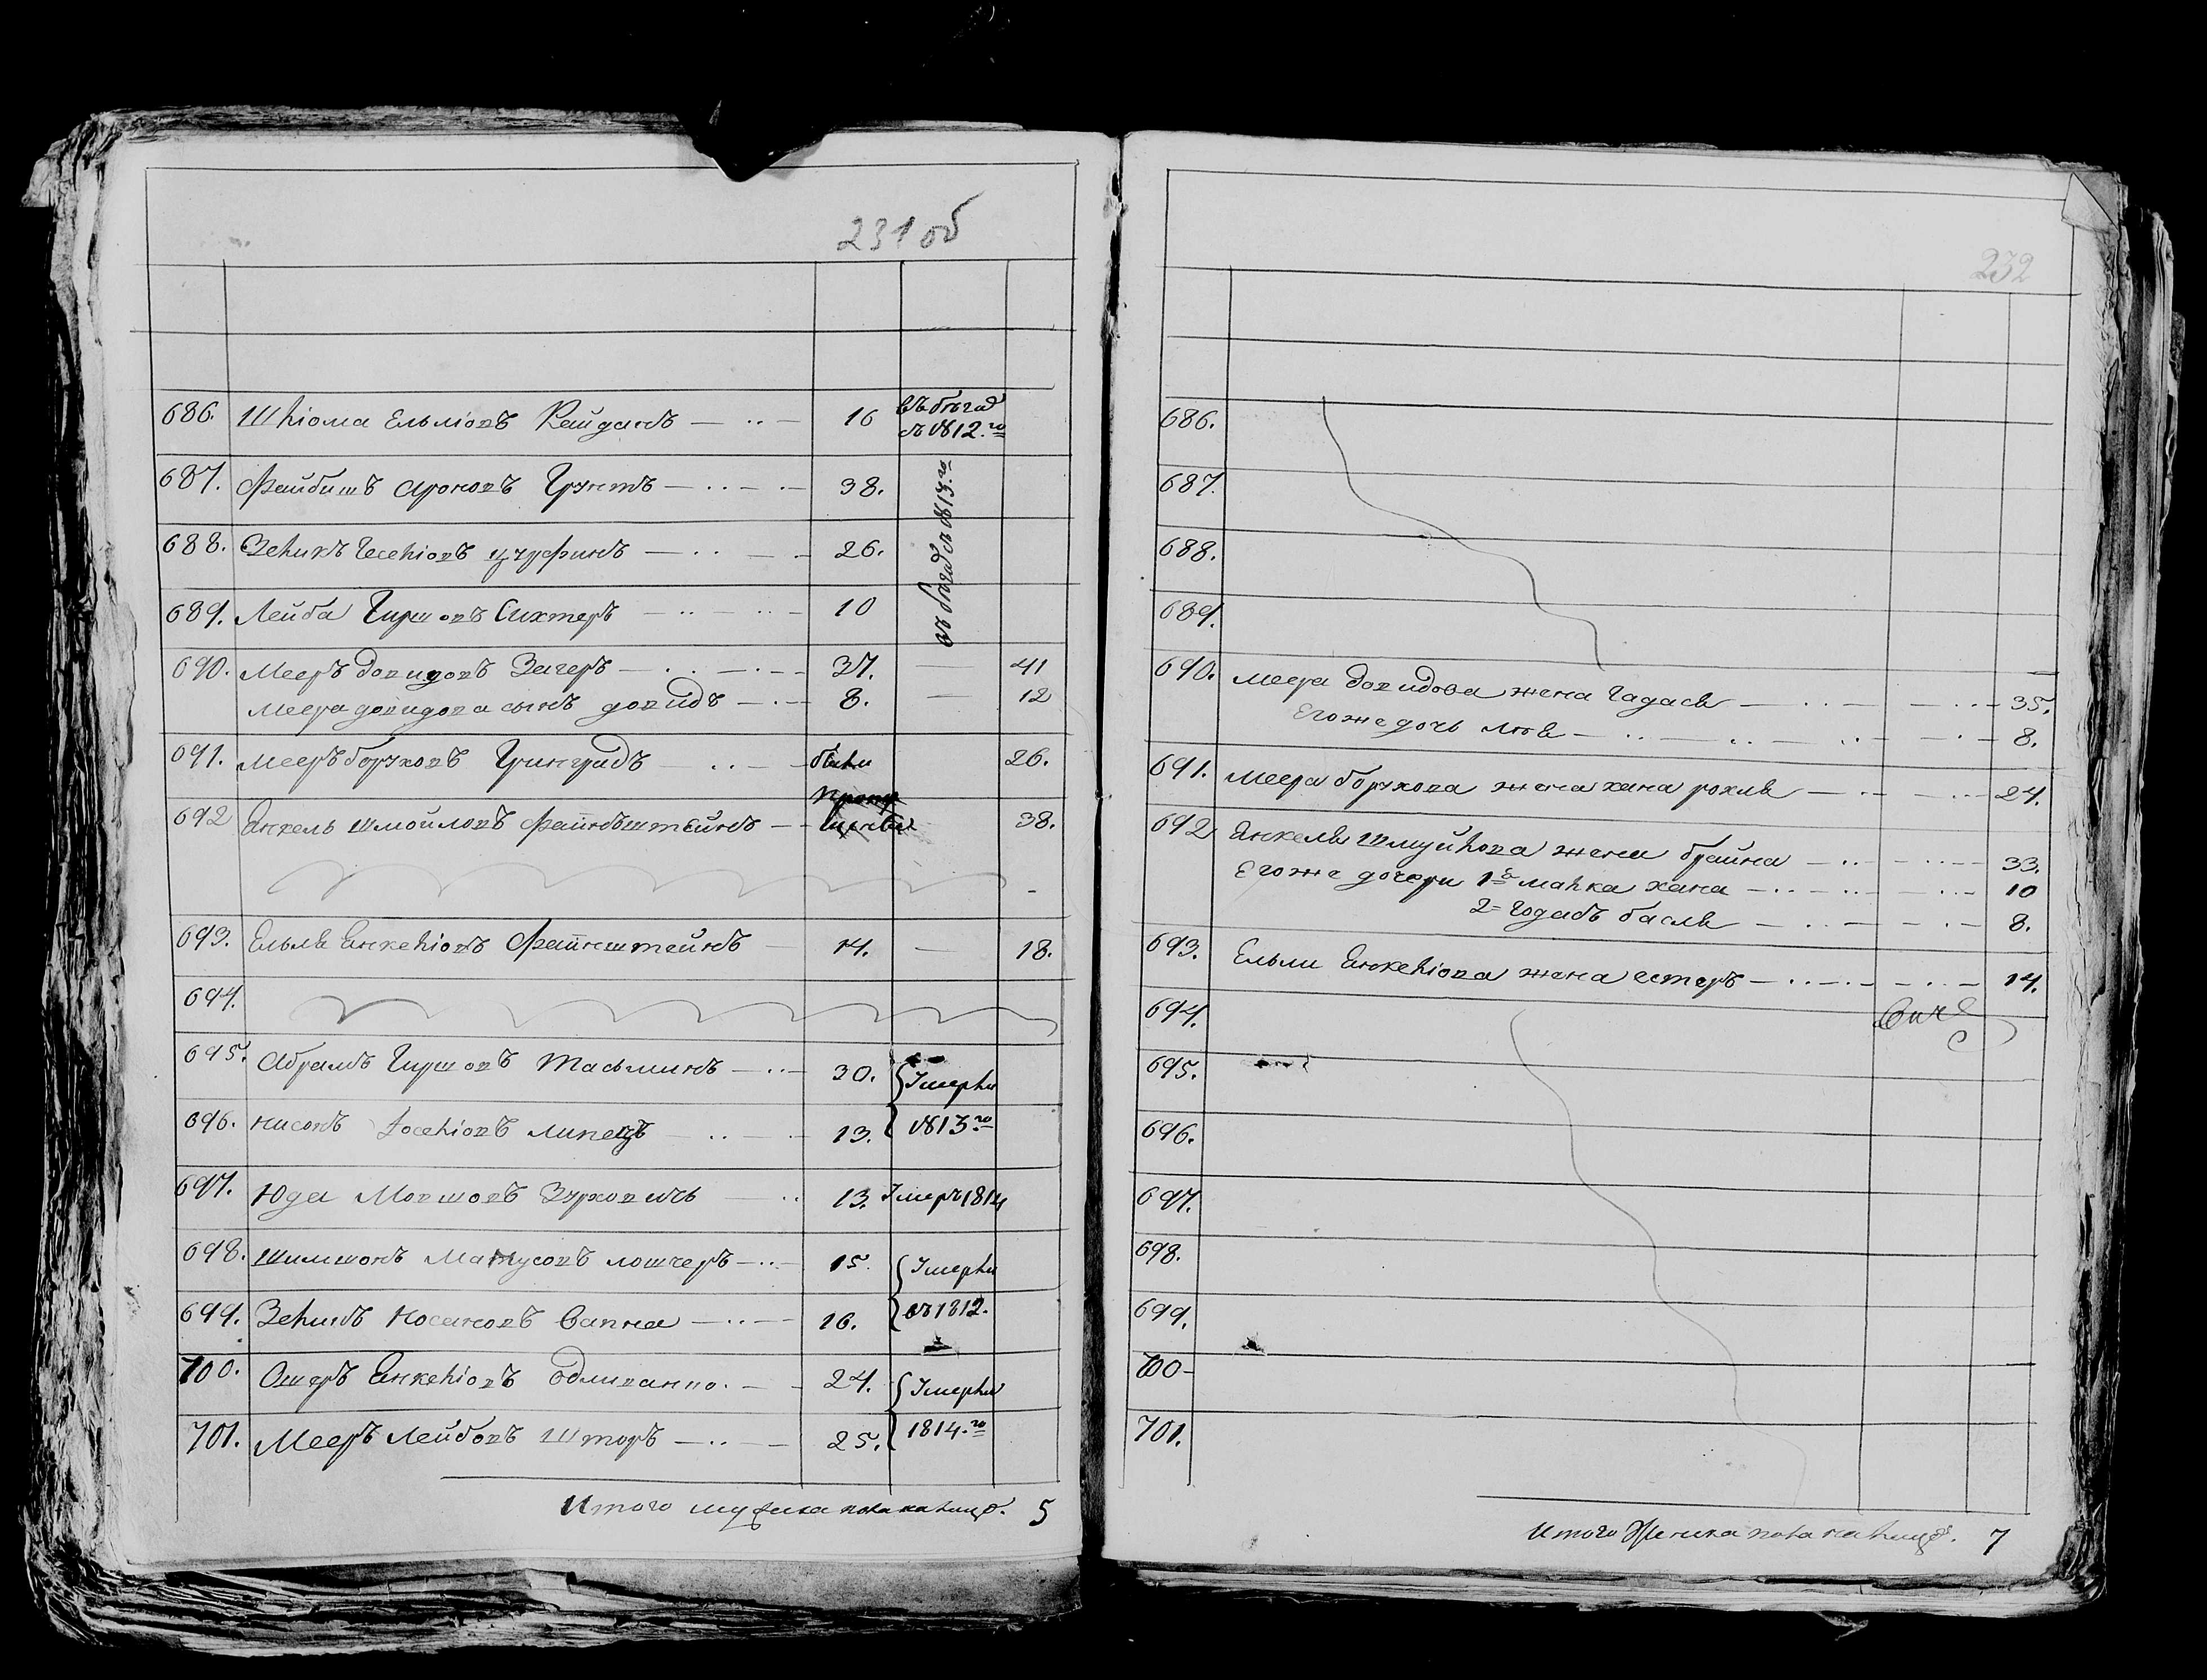 231 об
686. Шліома Ельліовъ Кейданъ 16 въ бѣгад съ 1812.го
687. Файбишъ Ароновъ Грунтъ 38.
въ бѣгад съ 1813.го
688. Зеликъ Іоселіовъ 26.
689. Лейба Гиршовъ Сихтеръ 10
690. Мееръ Довидовъ Загеръ 37. — 41
Меера довидова сынъ довидъ 8. — 12
691. Мееръ боруховъ были 26.
692 Янкель Шмойловъ файнъштейнъ 38.
693. Ельля Янкеліовъ Файнштейнъ 14. — 18.
694.
695. Абрамъ Гиршовъ Тасьминъ 30. Умерли
696. нисонъ Іоселіовъ липецъ 13. 1813го
697. Юда Мовшовъ 13. Умеръ 1814
698. Шимшонъ Матусовъ 15. Умерли
699. Носоновъ Сапна 16. въ 1812.
700. Ошеръ Янкеліовъ 24. Умерли
701. Мееръ Лейбовъ Шторъ 25. 1814.го
Итого мужеска пола налицо. 5
232
686.
687.
688.
689.
690. Меера Довидова жена Гадась 35.
Егоже дочь 8.
691. Меера борухова жена хана рохля 24.
692 Янкеля Шмуйлова жена брайна 33.
Егоже дочери 1я малка хана 10
2 Годасъ бася 8.
693. Ельли Янкеліова жена естеръ 14.
694.
695.
696.
697.
698.
699.
700
701.
Итого Женска пола налицо. 7